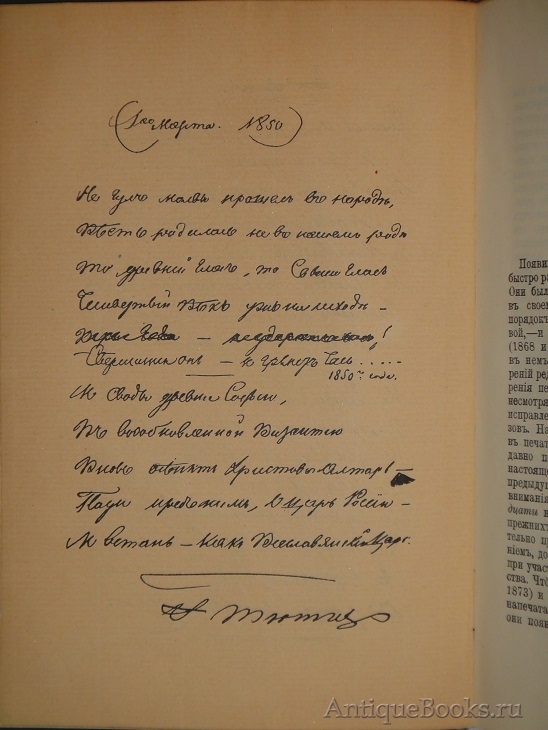 (1го Марта. 1850)
Не гулъ молвы прошелъ въ народѣ,
Вѣсть родилась не въ нашемъ родѣ
То древній гласъ, то свыше гласъ
Четвертый вѣкъ ужъ на исходѣ –
Свершится онъ – и грянетъ часъ .....
1850го года.
И своды древніе Софіи,
Въ возобновленной Византіи
Вновь осѣнятъ Христовъ олтарь –
Пади предъ нимъ, о Царь Россіи –
И встань – какъ Всеславянскій Царь.
Ѳ Тютчевъ
Появи
быстро ра
Они был
въ свое
порядокъ
вой,—и
(1868 и
въ немъ
реній ред
ренія пе
несмотря
исправле
зовъ. На
въ печат
давно п
настояще
предыду
внимані
дуаты н
прежнихъ
тельно пр
ніемъ, до
при учас
ства. Чт
1873) и
напечата
они появ
AntiqueBooks.ru